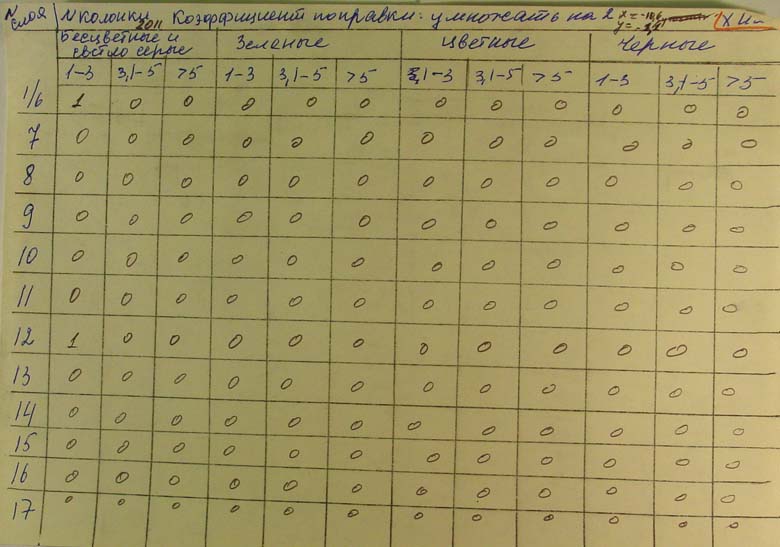 N слоя N колонки 2011 Коэффициент поправки: умножать на 2 x = -10,6
y =
Бесцветные и светло серые Зеленые Цветные Черные
1-3 3,1-5 >5 1-3 3,1-5 >5 3,1-3 3,1-5 >5 1-3 3,1-5 >5
1/6 1 0 0 0 0 0 0 0 0 0 0 0
7 0 0 0 0 0 0 0 0 0 0 0 0
8 0 0 0 0 0 0 0 0 0 0 0 0
9 0 0 0 0 0 0 0 0 0 0 0 0
10 0 0 0 0 0 0 0 0 0 0 0 0
11 0 0 0 0 0 0 0 0 0 0 0 0
12 1 0 0 0 0 0 0 0 0 0 0 0
13 0 0 0 0 0 0 0 0 0 0 0 0
14 0 0 0 0 0 0 0 0 0 0 0 0
15 0 0 0 0 0 0 0 0 0 0 0 0
16 0 0 0 0 0 0 0 0 0 0 0 0
17 0 0 0 0 0 0 0 0 0 0 0 0